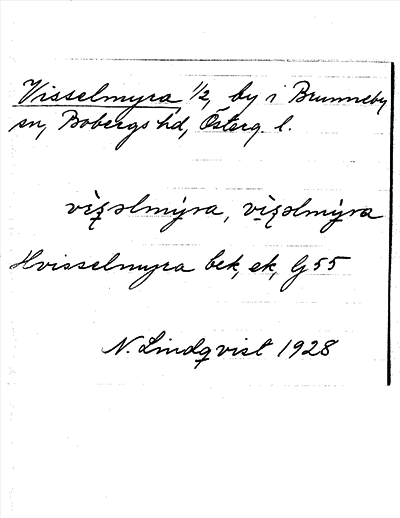 Visselmyra 1/2, by i Brunneby
sn, Bobergs hd, Österg. l.
vìs̨əlmý̜ra, vì̠s̨əlmý̜ra
Hvisselmyra bek, ek, G 55
N. Lindqvist 1928